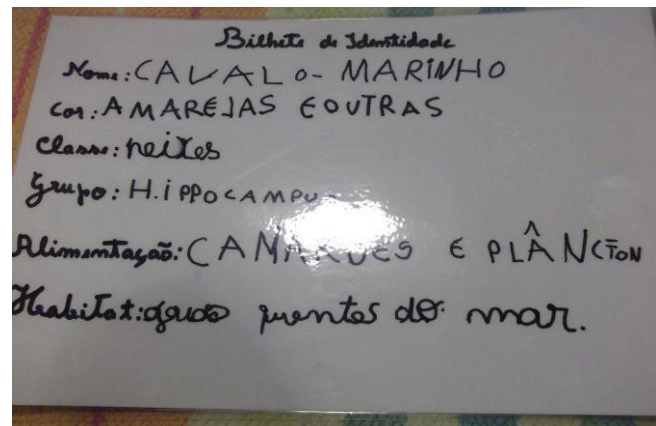 Bilhete de Identidade
Nome: CAVALO- MARINHO
Cor: AMARELAS E OUTRAS
Classe: peixes
Grupo: H.iPPOCAMPU
Alimentação: E PLÂNCTON
Habitat: quentes do mar.